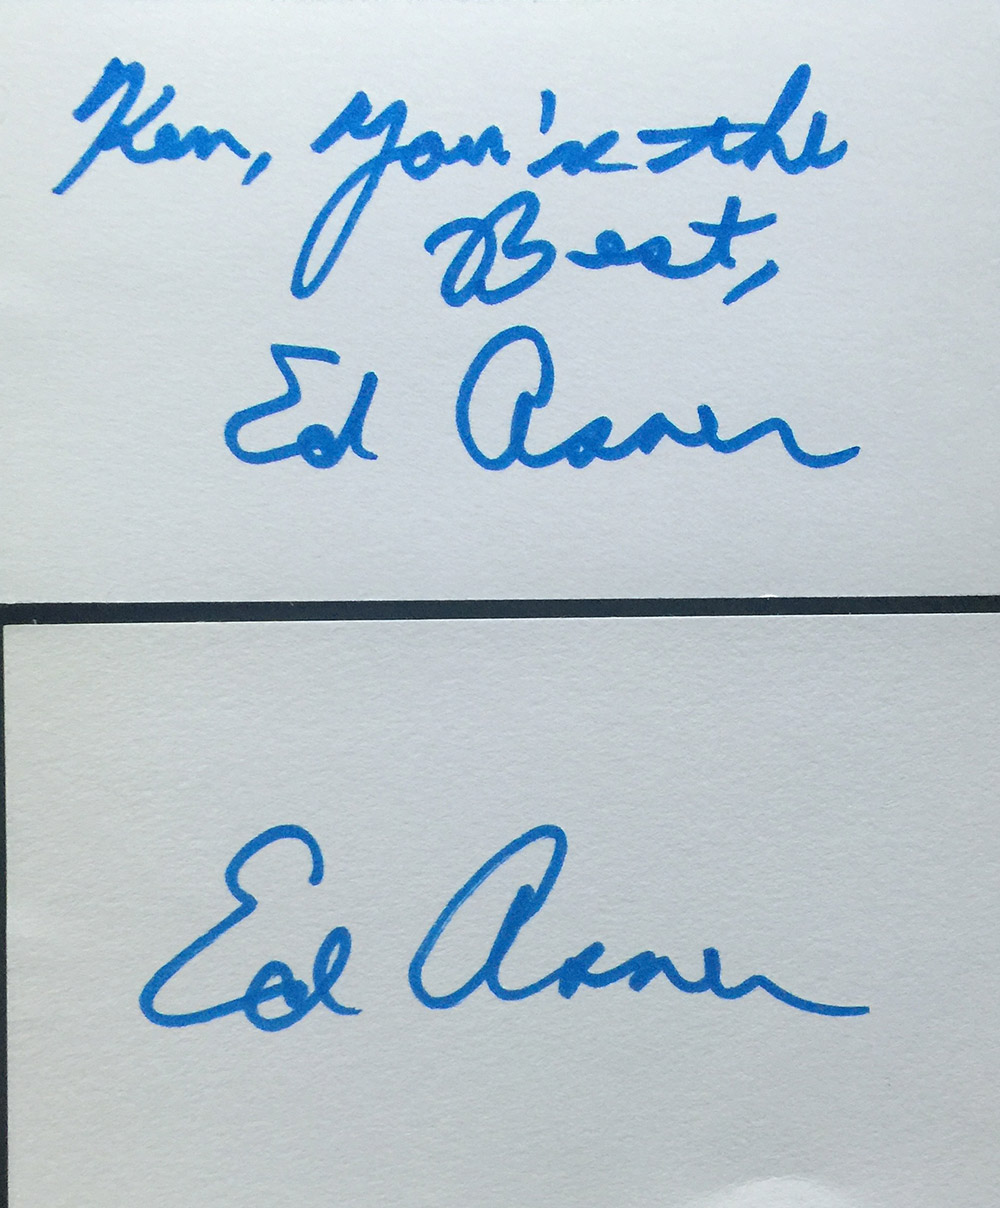 Ken, You're the
Best,
Ed Asner
Ed Asner